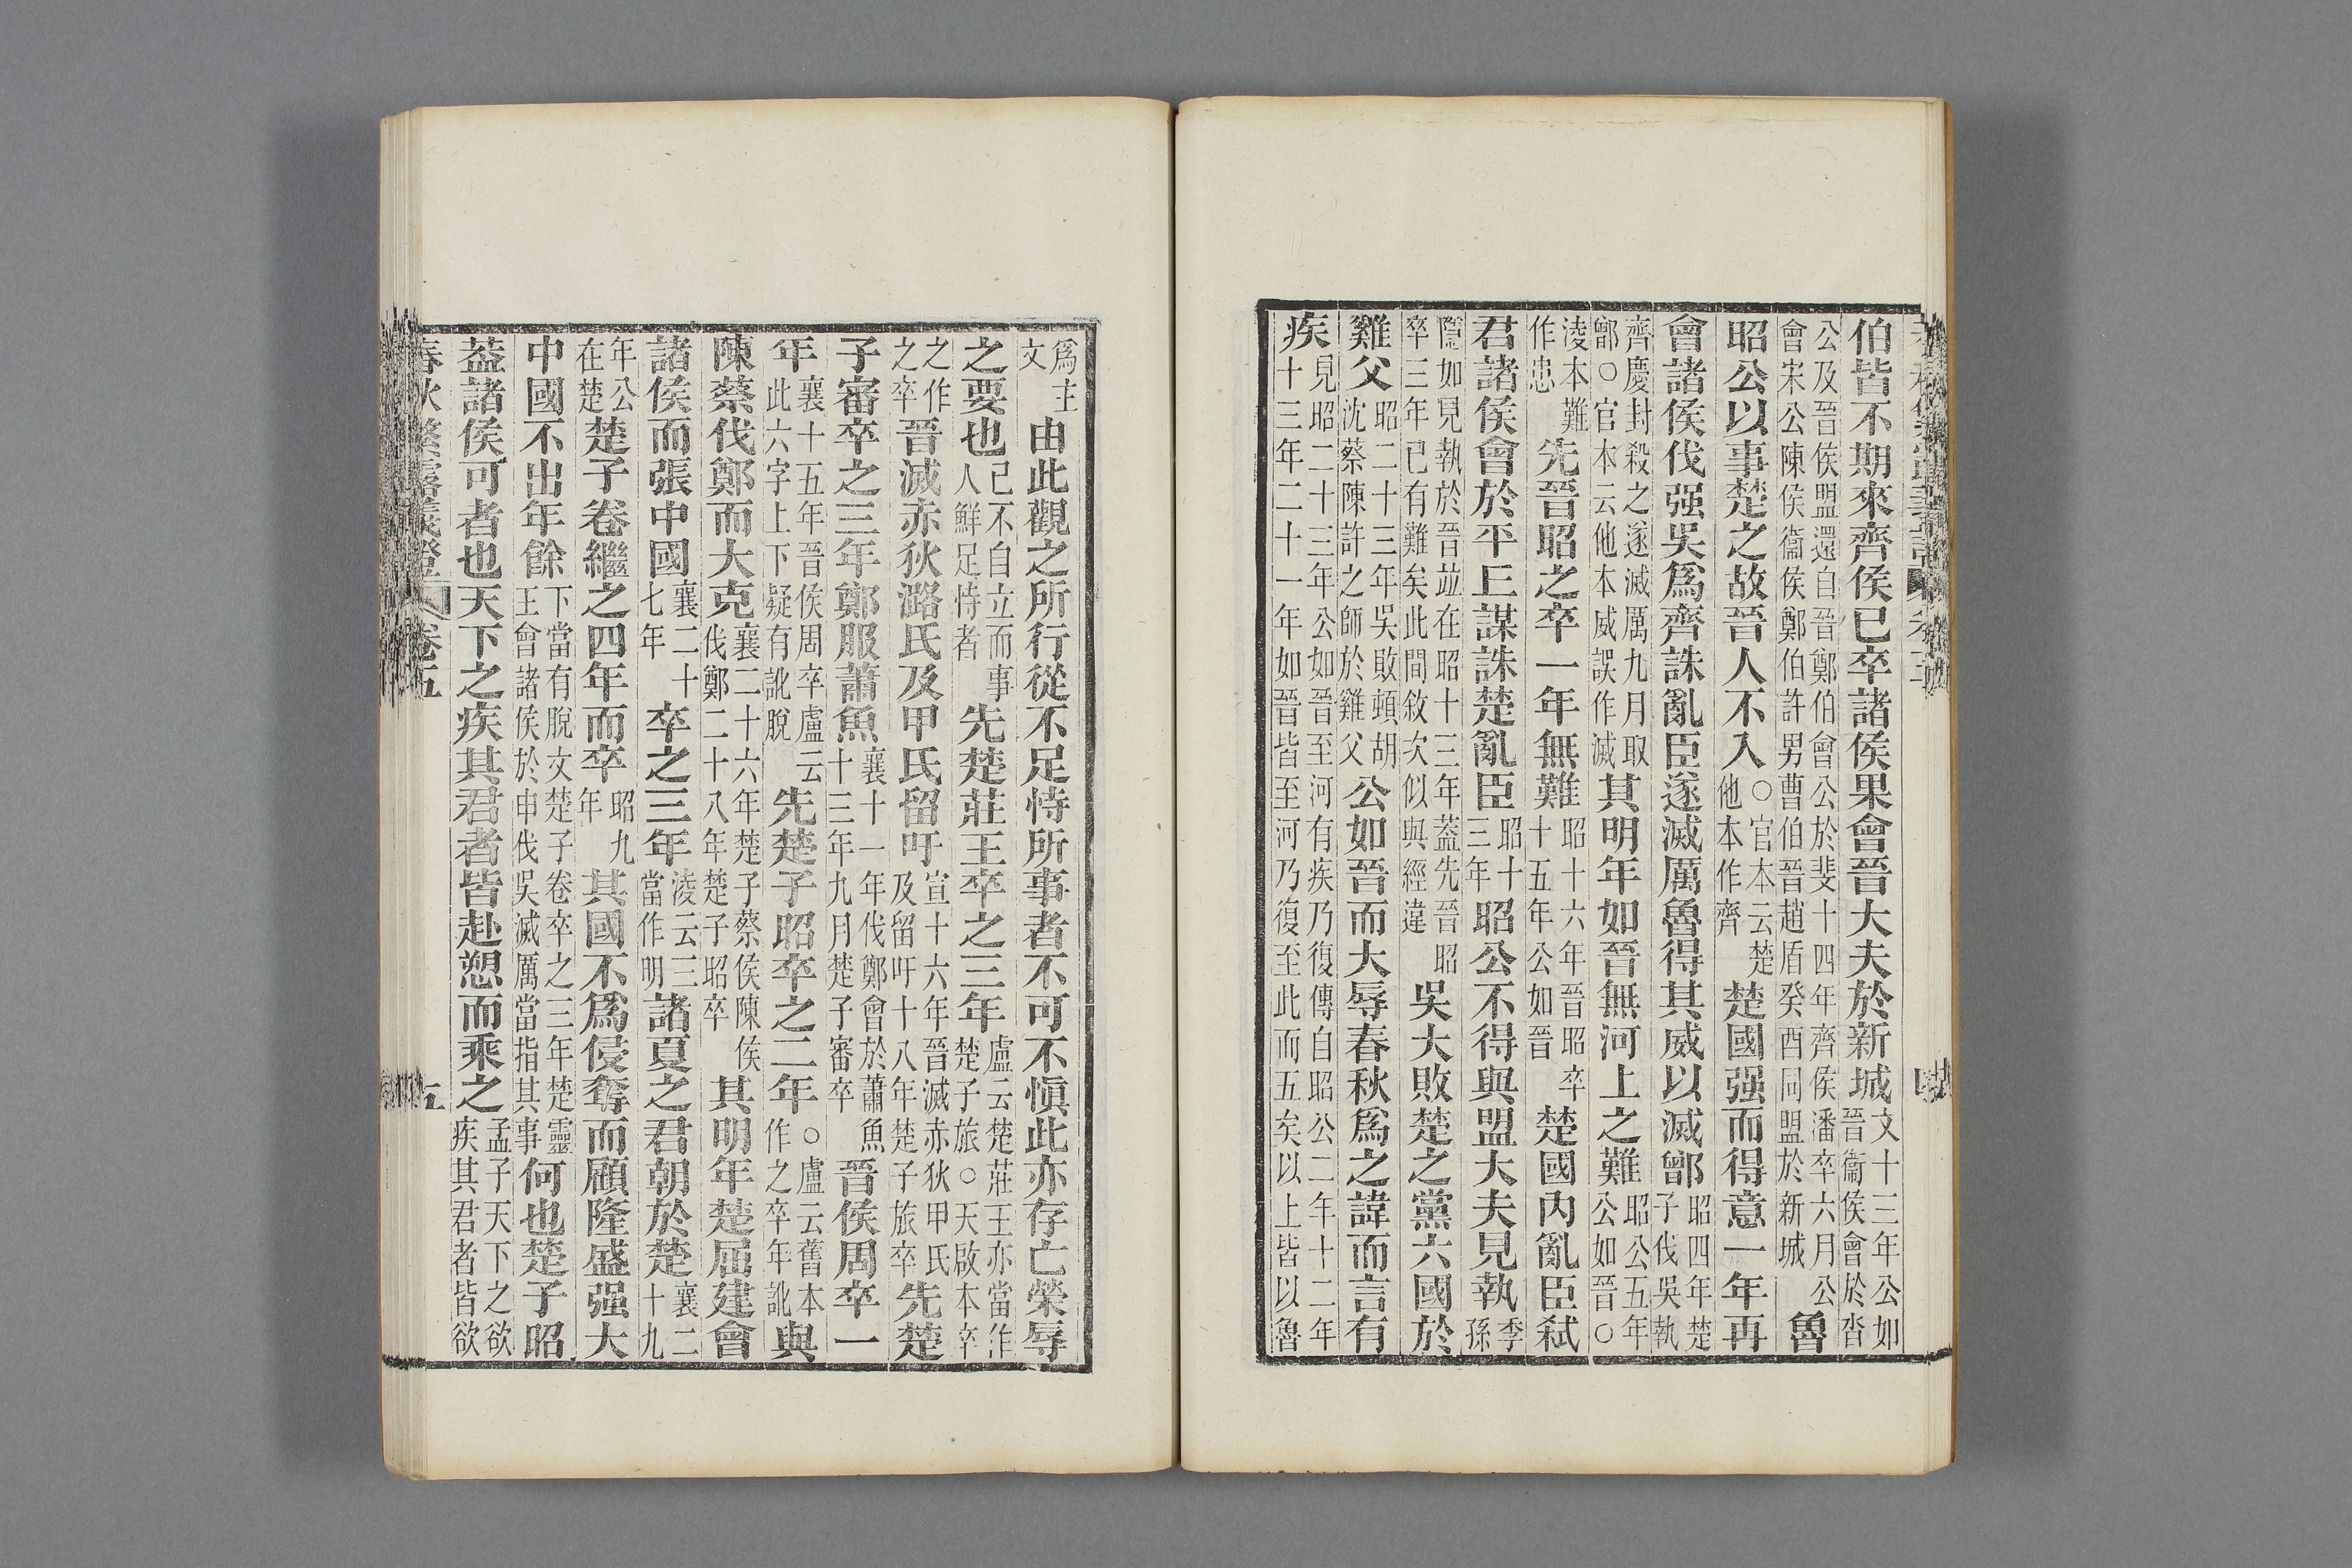 伯皆不期來齊侯已卒諸侯果會晉大夫於新城文十三年公如晉衞侯會於沓
公及晉侯盟還自晉鄭伯會公於斐十四年齊侯潘卒六月公會宋公陳侯衞侯鄭伯許男曹伯晉趙盾癸酉同盟於新城魯
昭公以事楚之故晉人不入○官本云楚他本作齊楚國强而得意一年再
會諸侯伐强吳爲齊誅亂臣遂滅厲魯得其威以滅鄫昭四年楚子伐吳執
齊慶封殺之遂滅厲九月取鄫○官本云他本威誤作滅其明年如晉無河上之難昭公五年公如晉○
淩本難作患先晉昭之卒一年無難昭十六年晉昭卒十五年公如晉楚國內亂臣弑
君諸侯會於平王謀誅楚亂臣昭十三年昭公不得與盟大夫見執季孫
隱如見執於晉並在昭十三年蓋先晉昭卒三年已有難矣此間敘次似與經違吳大敗楚之黨六國於
雞父昭二十三年吳敗頓胡沈蔡陳許之師於雞父公如晉而大辱春秋爲之諱而言有
疾見昭二十三年公如晉至河有疾乃復傳自昭公二年十二年十三年二十一年如晉皆至河乃復至此而五矣以上皆以魯
爲主文由此觀之所行從不足恃所事者不可不慎此亦存亡榮辱
之要也己不自立而事人鮮足恃者先楚莊王卒之三年盧云楚莊王亦當作楚子旅○天啟本卒
之作之卒晉滅赤狄潞氏及甲氏留吁宣十六年晉滅赤狄甲氏及留吁十八年楚子旅卒先楚
子審卒之三年鄭服蕭魚襄十一年伐鄭會於蕭魚十三年九月楚子審卒晉侯周卒一
年襄十五年晉侯周卒盧云此六字上下疑有訛脫先楚子昭卒之二年○盧云舊本作之卒年訛與
陳蔡伐鄭而大克襄二十六年楚子蔡侯陳侯伐鄭二十八年楚子昭卒其明年楚屈建會
諸侯而張中國襄二十七年卒之三年淩云三當作明諸夏之君朝於楚襄二十九
年公在楚楚子卷繼之四年而卒昭九年其國不爲侵奪而顧隆盛强大
中國不出年餘下當有脫文楚子卷卒之三年楚靈王會諸侯於申伐吳滅厲當指其事何也楚子昭
蓋諸侯可者也天下之疾其君者皆赴愬而乘之孟子天下之欲疾其君者皆欲
春秋繁露義證 卷五 五